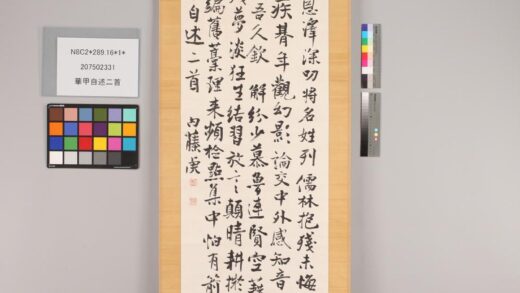 N8C2*289.16*1*
207502331
華甲自述二首
恩澤深叨将名姓列儒林抱殘未悔
疾朞年觀幻影論交中外感知音
吾久欽解紛少慕魯連賢空藉
夢淡狂生結習放言顛晴耕
編舊藁理来頻檢點集中怕有前
自述二首 内藤虎